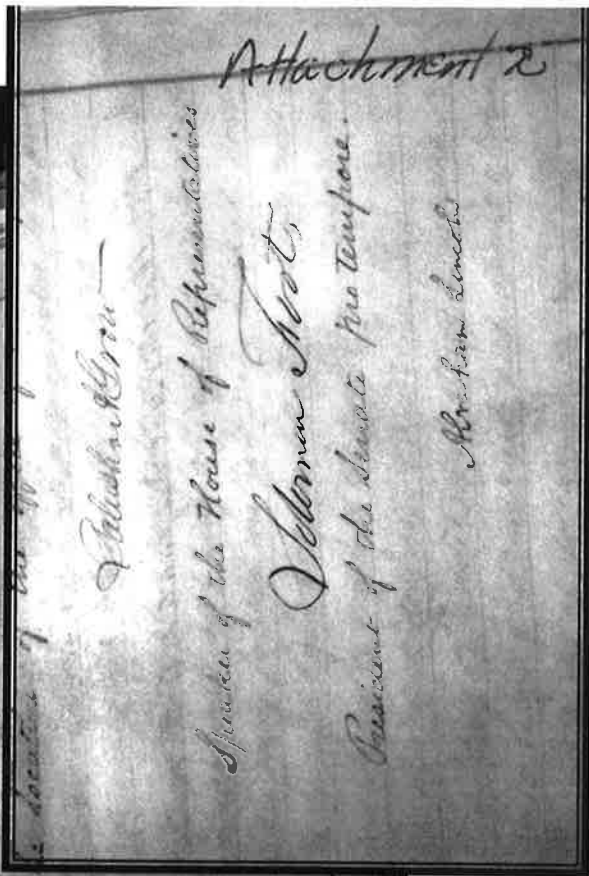 Attachment 2
located of the
Galusha A Grow
Speaker of the House of Representatives
Solomon Foot,
President of the Senate pro tempore.
Abraham Lincoln